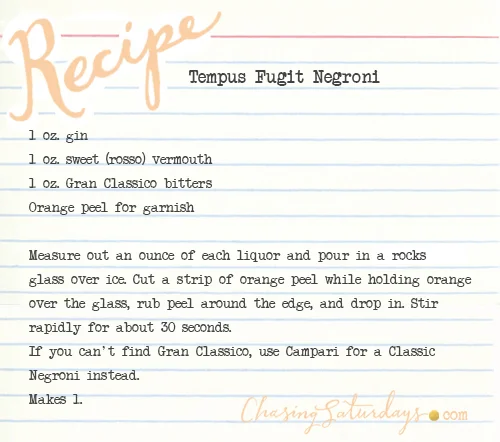 Recipe
Tempus Fugit Negroni
1 oz. gin
1 oz. sweet (rosso) vermouth
1 oz. Gran Classico bitters
Orange peel for garnish
Measure out an ounce of each liquor and pour in a rocks
glass over ice. Cut a strip of orange peel while holding orange
over the glass, rub peel around the edge, and drop in. Stir
rapidly for about 30 seconds.
If you can't find Gran Classico, use Campari for a Classic
Negroni instead.
Makes 1.
ChasingSaturdays.com